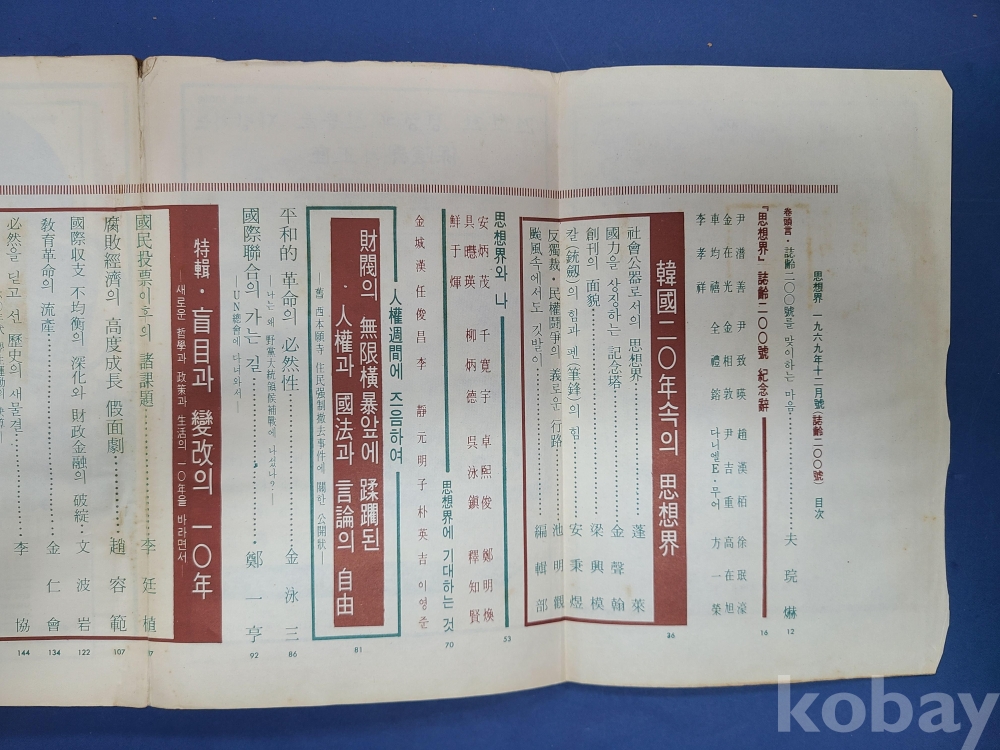 思想界 一九六九年十二月號 (誌齡二〇〇號) 目次
卷頭言・誌齡二〇〇號을 맞이하는 마음 夫琓爀 12
『思想界』誌齡二〇〇號 紀念辭 16
尹潽善 尹致暎 趙漢栢 徐珉濠
金在光 金相敦 尹吉重 高在旭
車均禧 全禮鎔 다니엘E・무어 方一榮
李孝祥
韓國二〇年속의 思想界 36
社會公器로서의 思想界 蓬萊
國力을 상징하는 記念塔 金聲翰
創刊의 面貌 梁興模
칼(銃劍)의 힘과 펜(筆鋒)의 힘 安秉煜
反獨裁・民權鬪爭의 義로운 行路 池明觀
颱風속에서도 깃발이 編輯部
思想界와 나 53
安炳茂 千寬宇 卓熙俊 鄭明煥
具㬢英 柳炳德 吳泳鎭 釋知賢
鮮于煇
思想界에 기대하는 것 70
金城漢 任俊昌 李靜 元明子 朴英吉 이영줄
人權週間에 즈음하여
財閥의 無限橫暴앞에 蹂躙된
・人權과 國法과 言論의 自由 81
—舊 西本願寺 住民强制撤去事件에 關한 公開狀—
平和的 革命의 必然性 金泳三 86
—나는 왜 野黨大統領候補戰에 나섰나?—
國際聯合의 가는 길 鄭一亨 92
—UN總會에 다녀와서—
特輯・盲目과 變改의 一〇年
—새로운 哲學과 政策과 生活의 一〇年을 바라면서—
國民投票이호의 諸課題 李廷植 97
腐敗經濟의 高度成長 假面劇 趙容範 107
國際収支 不均衡의 深化와 財政金融의 破綻 文波岩 122
敎育革命의 流産 金仁會 134
必然을 딛고 선 歷史의 새물결 李協 144